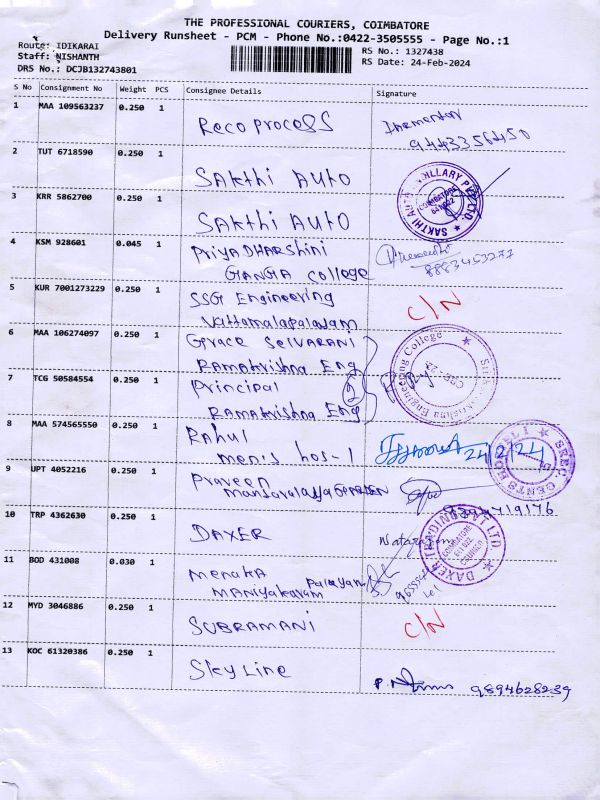 THE PROFESSIONAL COURIERS, COIMBATORE
Delivery Runsheet - PCM - Phone No.:0422-3505555 - Page No.:1
Route: IDIKARAI
Staff: NISHANTH
DRS No.: DCJB132743801
RS No.: 1327438
RS Date: 24-Feb-2024
S No Consignment No Weight PCS Consignee Details Signature
1 MAA 109563237 0.250 1 Reco process
9443356450
2 TUT 6718590 0.250 1 SAKthi AUTO
3 KRR 5862700 0.250 1 SAKthi AUTO
4 KSM 928601 0.045 1 PriyADHARShini
GANGA College
8883453277
5 KUR 7001273229 0.250 1 SSG Engineering C/N
Vattamalapalayam
6 MAA 106274097 0.250 1 Grace SelVARANI
RAMAKrishna Eng
7 TCG 50584554 0.250 1 Principal
RAMAKrishna Eng
2
8 MAA 574565550 0.250 1 RAhul
men's hos-1 24/2/24
9 UPT 4052216 0.250 1 Praveen
GARDEN
10 TRP 4362630 0.250 1 DAXER Natarajan
11 BOD 431008 0.030 1 MenaKA
MANiyakaram Palayam
12 MYD 3046886 0.250 1 SUBRAMANI C/N
13 KOC 61320386 0.250 1 SkyLine 9894628239
SAKTHI AUTO ANCILLARY PVT LTD.
COIMBATORE
Engineering College
SREC GENTS HOSTEL I
DAXER TRADING PVT LTD
COIMBATORE
641 022
COURIER